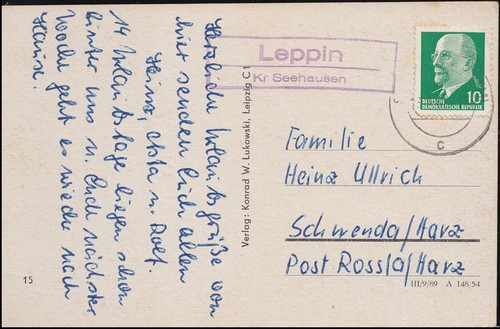 Herzliche Urlaubsgrüße von
hier senden Euch allen
Heinz, Christa u. Rolf.
14 Urlaubstage liegen schon
hinter uns u. Ende nächster
Woche geht es wieder nach
Hause.
15
Verlag: Konrad W. Lukowski, Leipzig C 1
Leppin
Kr Seehausen
10
DEUTSCHE
DEMOKRATISCHE REPUBLIK
c
Familie
Heinz Ullrich
Schwenda/Harz
Post Rossla/Harz
III/9/89 A 148/54